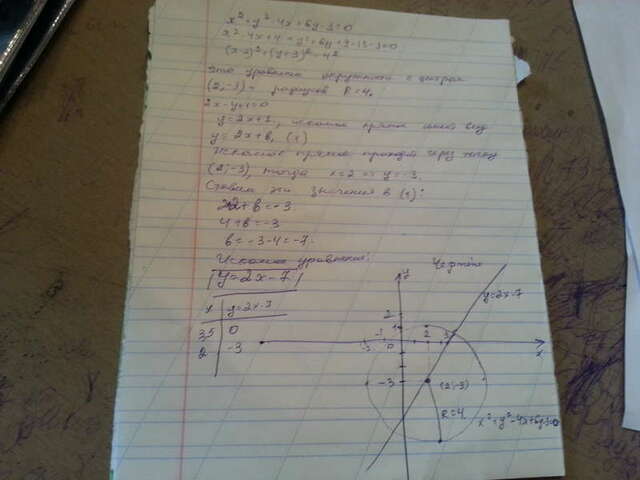 x² + y² - 4x + 6y - 3 = 0
x² - 4x + 4 + y² + 6y + 9 - 13 - 3 = 0
(x-2)² + (y+3)² = 4²
Это уравнение окружности с центром
(2;-3) радиусом R=4.
2x - y + 1 = 0
y = 2x+1, искомая прямая имеет вид
y = 2x + b, (1)
Искомая прямая проходит через точку
(2;-3), тогда x=2 => y=-3.
Ставим эти значения в (1):
2·2+b=-3
4+b=-3
b=-3-4=-7.
Искомое уравнение:
y=2x-7
x | y=2x-7
3,5 | 0
2 | -3
Чертёж
y
y=2x-7
2
1
-1
0
2
x
-3
(2;-3)
R=4
x²+y²-4x+6y-3=0